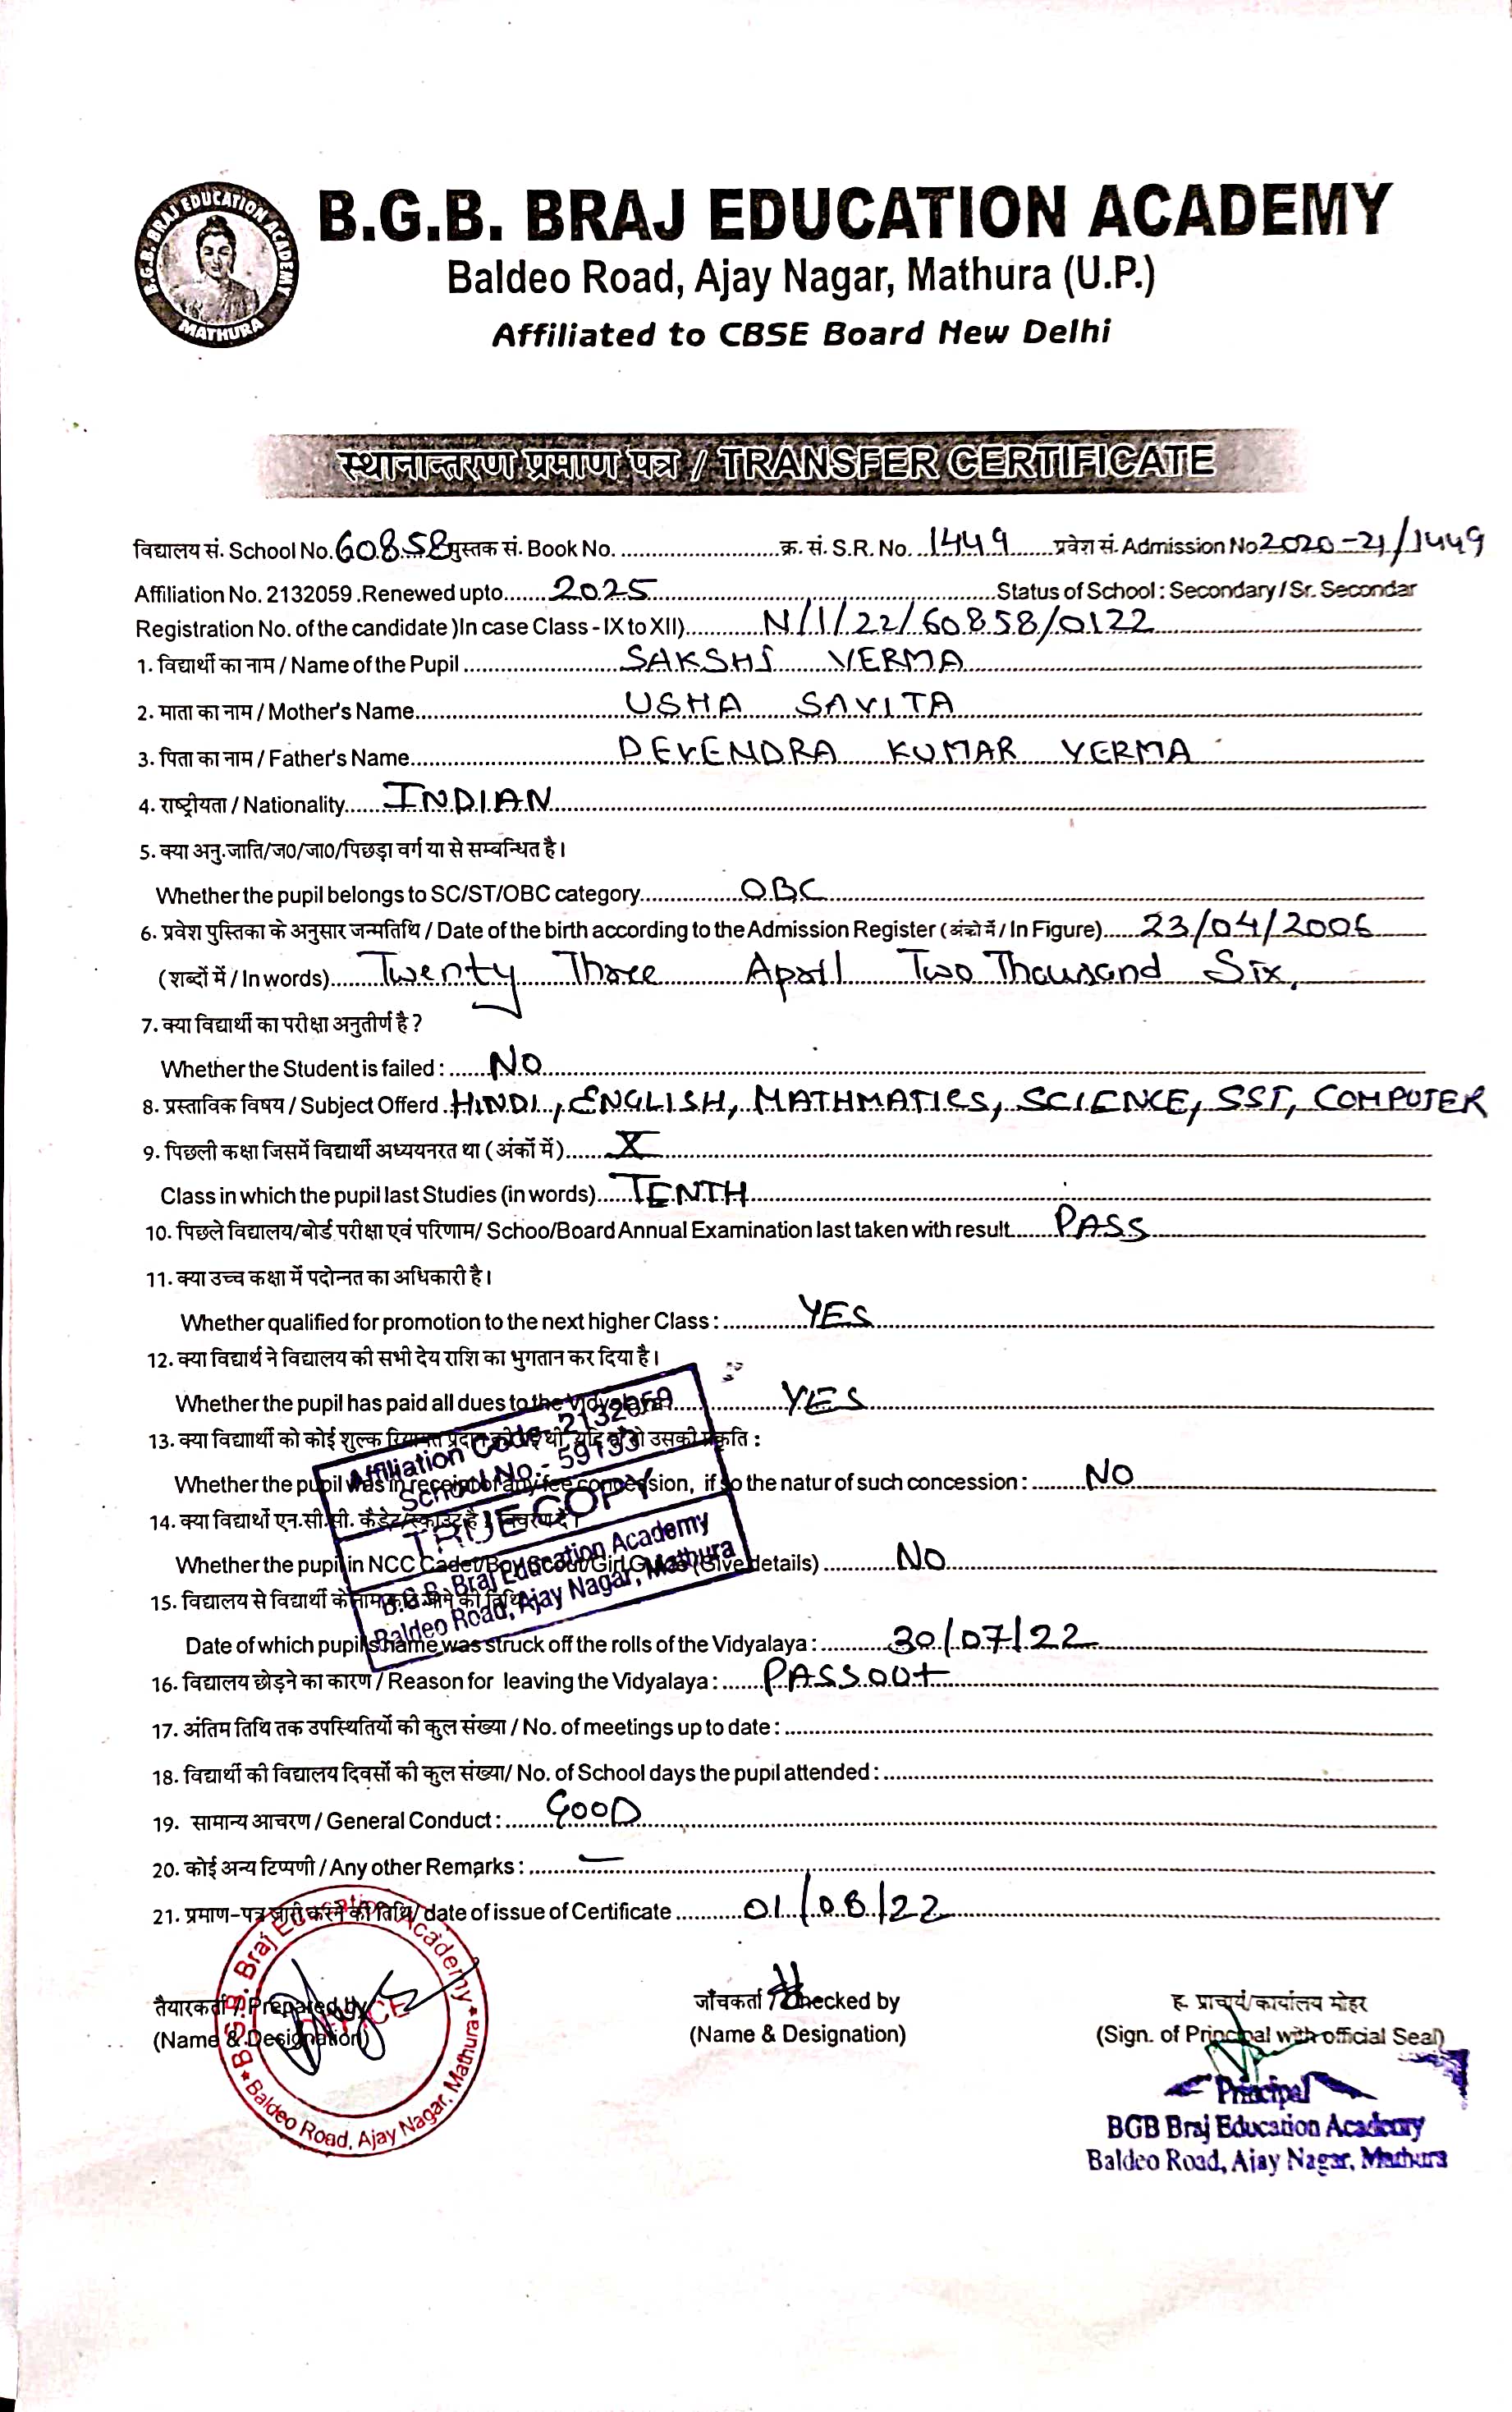 B.G.B. BRAJ EDUCATION ACADEMY
MATHURA
B.G.B. BRAJ EDUCATION ACADEMY
Baldeo Road, Ajay Nagar, Mathura (U.P.)
Affiliated to CBSE Board New Delhi
स्थानान्तरण प्रमाण पत्र / TRANSFER CERTIFICATE
विद्यालय सं. School No. 60858 पुस्तक सं. Book No. ............ क्र. सं. S.R. No. 1449 प्रवेश सं. Admission No 2020-21/1449
Affiliation No. 2132059 .Renewed upto....... 2025 ............Status of School : Secondary / Sr. Secondar
Registration No. of the candidate )In case Class - IX to XII)............ N/1/22/60858/0122
1. विद्यार्थी का नाम / Name of the Pupil ............ SAKSHI VERMA
2. माता का नाम / Mother's Name............ USHA SAVITA
3. पिता का नाम / Father's Name............ DEVENDRA KUMAR VERMA
4. राष्ट्रीयता / Nationality...... INDIAN
5. क्या अनु.जाति/ज0/जा0/पिछड़ा वर्ग या से सम्वन्धित है।
Whether the pupil belongs to SC/ST/OBC category............ OBC
6. प्रवेश पुस्तिका के अनुसार जन्मतिथि / Date of the birth according to the Admission Register (अंको में / In Figure)...... 23/04/2006
(शब्दों में / In words)......... Twenty Three April Two Thousand Six.
7. क्या विद्यार्थी का परीक्षा अनुतीर्ण है ?
Whether the Student is failed : ...... NO
8. प्रस्ताविक विषय / Subject Offerd . HINDI, ENGLISH, MATHMATICS, SCIENCE, SST, COMPUTER
9. पिछली कक्षा जिसमें विद्यार्थी अध्ययनरत था (अंकों में)...... X
Class in which the pupil last Studies (in words)..... TENTH
10. पिछले विद्यालय/बोर्ड परीक्षा एवं परिणाम/ Schoo/Board Annual Examination last taken with result....... PASS
11. क्या उच्च कक्षा में पदोन्नत का अधिकारी है।
Whether qualified for promotion to the next higher Class : ............ YES
12. क्या विद्यार्थ ने विद्यालय की सभी देय राशि का भुगतान कर दिया है।
Whether the pupil has paid all dues to the Vidyalaya ............ YES
13. क्या विद्याार्थी को कोई शुल्क उसकी प्रकृति :
Whether the pupil was in receipt of any fee concession, if so the natur of such concession : ......... NO
14. क्या विद्यार्थी एन.सी.सी. कैडेट/स्काउट है
Whether the pupil in NCC Cadet/Boy Scout/Girl Guide (Give details) ......... NO
15. विद्यालय से विद्यार्थी के नाम
Date of which pupil's name was struck off the rolls of the Vidyalaya : ......... 30/07/22
Affiliation Code- 2132059
School No.- 59133
TRUE COPY
B.G.B. Braj Education Academy
Baldeo Road, Ajay Nagar, Mathura
16. विद्यालय छोड़ने का कारण / Reason for leaving the Vidyalaya : ...... PASSOUT
17. अंतिम तिथि तक उपस्थितियों की कुल संख्या / No. of meetings up to date : ............
18. विद्यार्थी की विद्यालय दिवसों की कुल संख्या/ No. of School days the pupil attended : ............
19. सामान्य आचरण / General Conduct : ...... GOOD
20. कोई अन्य टिप्पणी / Any other Remarks : ......... —
21. प्रमाण-पत्र जारी करने की तिथि/ date of issue of Certificate ......... 01/08/22
B.G.B. Braj Education Academy
OFFICE
Baldeo Road, Ajay Nagar, Mathura
तैयारकर्ता / Prepared by जाँचकर्ता / Checked by ह. प्राचार्य/कार्यालय मोहर
(Name & Designation) (Name & Designation) (Sign. of Principal with official Seal)
Principal
BGB Braj Education Academy
Baldeo Road, Ajay Nagar, Mathura